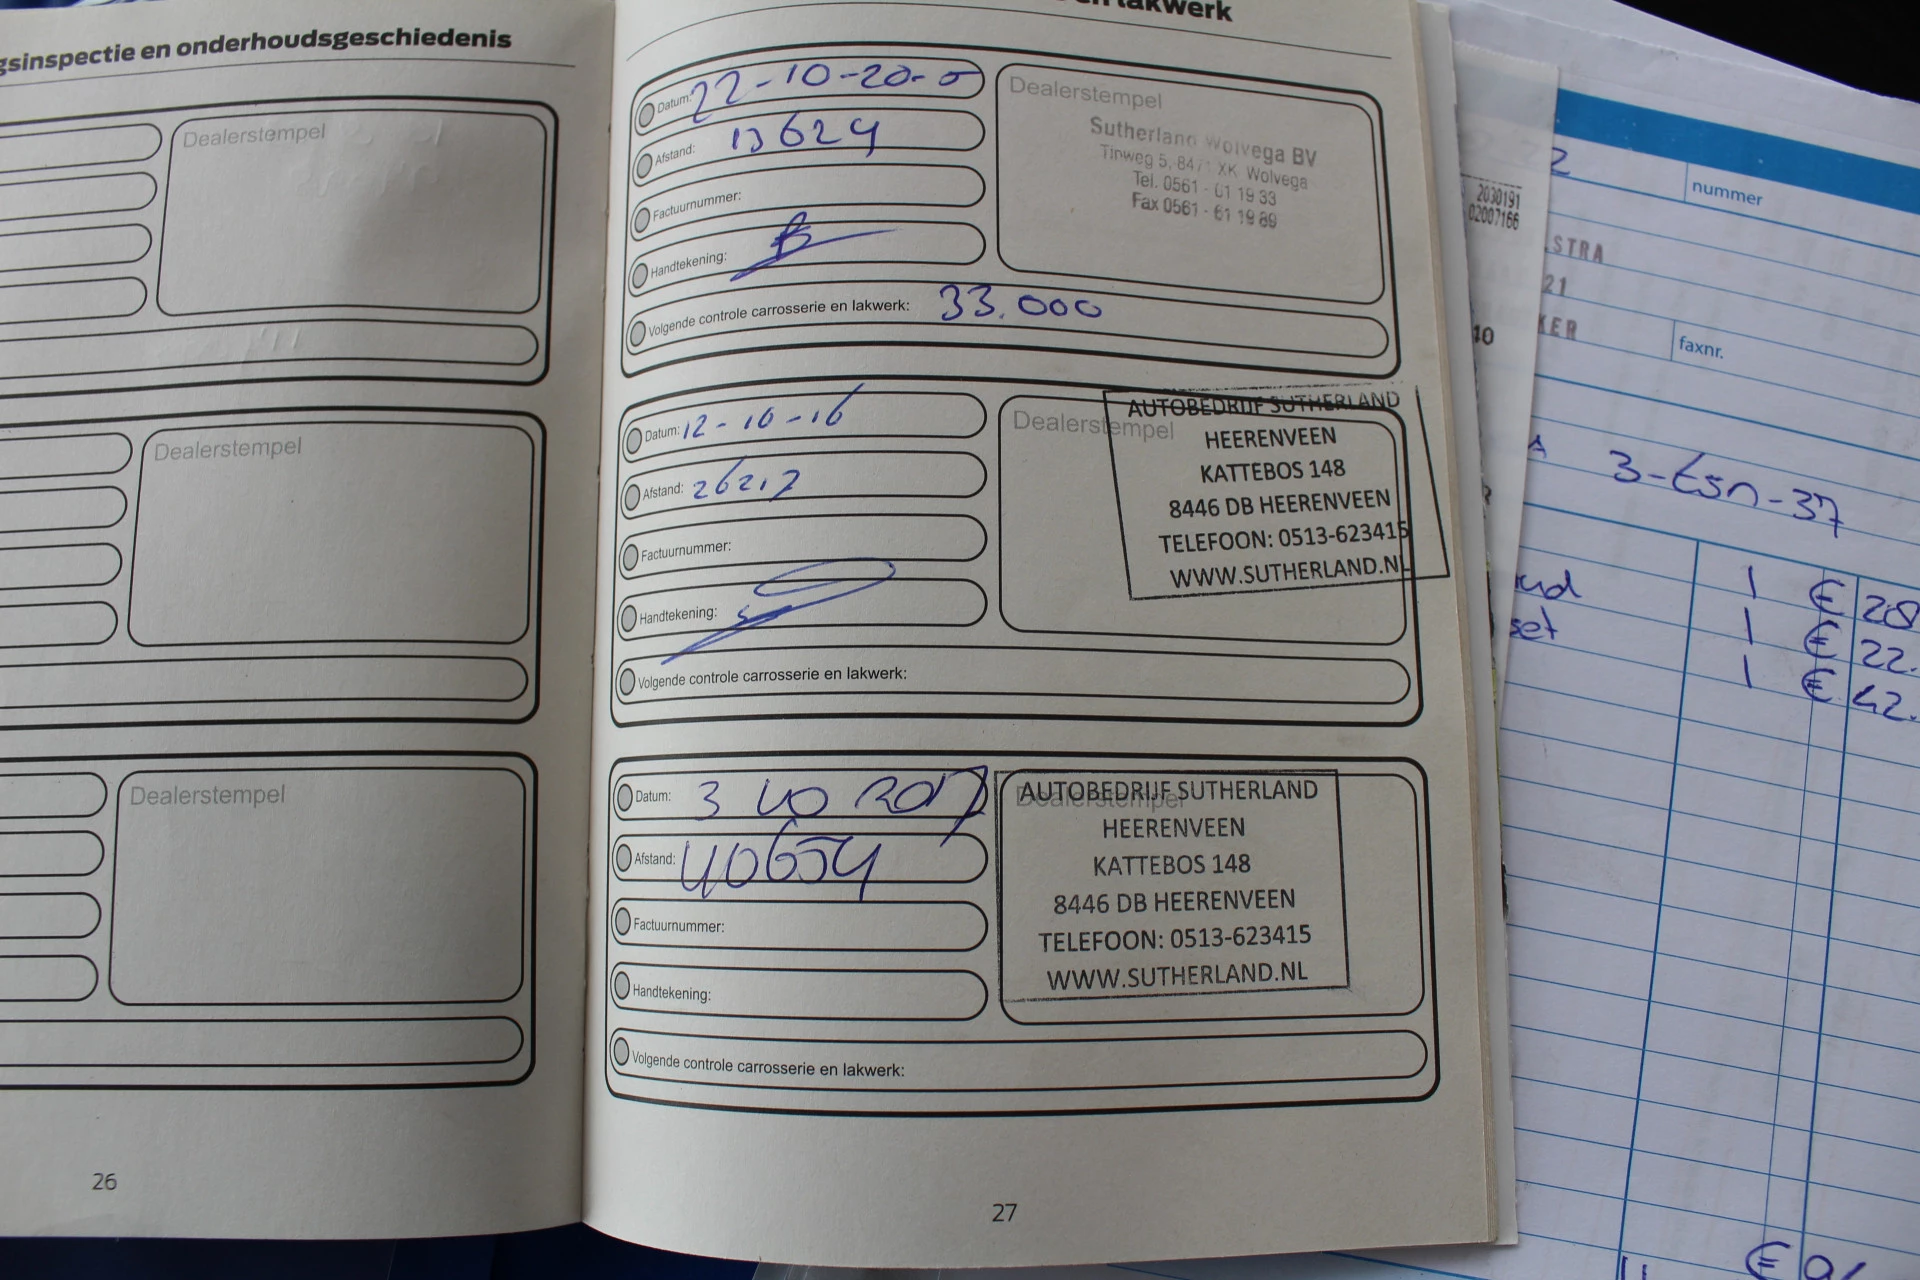 gsinspectie en onderhoudsgeschiedenis
Dealerstempel
Dealerstempel
Dealerstempel
26
en lakwerk
Datum: 22-10-20
Afstand: 13624
Factuurnummer:
Handtekening:
Volgende controle carrosserie en lakwerk: 33.000
Dealerstempel
Sutherland Wolvega BV
Tinweg 5, 8471 XK Wolvega
Tel. 0561 - 61 19 33
Fax 0561 - 61 19 89
Datum: 12-10-16
Afstand: 26217
Factuurnummer:
Handtekening:
Volgende controle carrosserie en lakwerk:
Dealerstempel
AUTOBEDRIJF SUTHERLAND
HEERENVEEN
KATTEBOS 148
8446 DB HEERENVEEN
TELEFOON: 0513-623415
WWW.SUTHERLAND.NL
Datum: 3 2017
Afstand: 40654
Factuurnummer:
Handtekening:
Volgende controle carrosserie en lakwerk:
Dealerstempel
AUTOBEDRIJF SUTHERLAND
HEERENVEEN
KATTEBOS 148
8446 DB HEERENVEEN
TELEFOON: 0513-623415
WWW.SUTHERLAND.NL
27
2030191
02007166
10
2
nummer
STRA
21
KER
faxnr.
ud 1 € 28
set 1 € 22.
1 € 42.
€